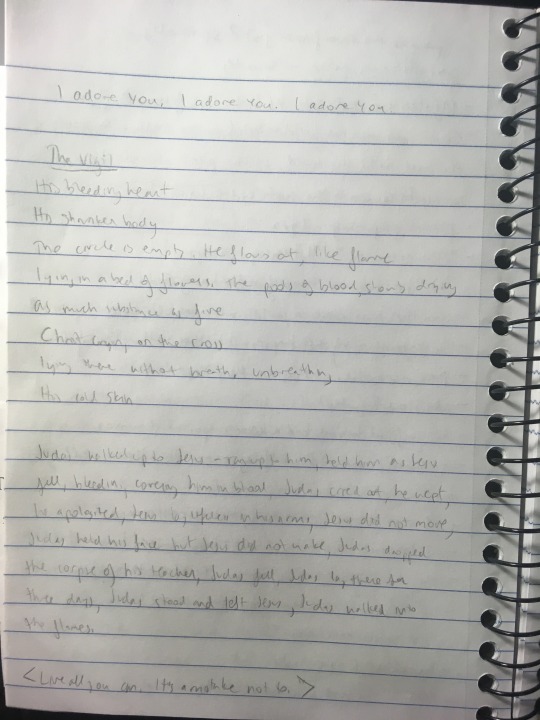 I adore you, I adore you. I adore you
The Vigil
His bleeding heart
His shrunken body
The circle is empty. He flows out, like flame
lying in a bed of flowers. The pods of blood, slowly drying
as much substance as fire
Christ crying on the cross
lying there without breath, unbreathing
His cold skin
Judas walked up to Jesus – ran up to him, held him as Jesus
fell, bleeding, covering him in blood, Judas cried out, he wept,
he apologized, Jesus in his arms, Jesus did not move,
Judas held his face but Jesus did not wake, Judas dropped
the corpse of his teacher, Judas fell, Judas lay there for
three days, Judas stood and left Jesus, Judas walked into
the flames.
<Live all you can. Its a mistake not to.>